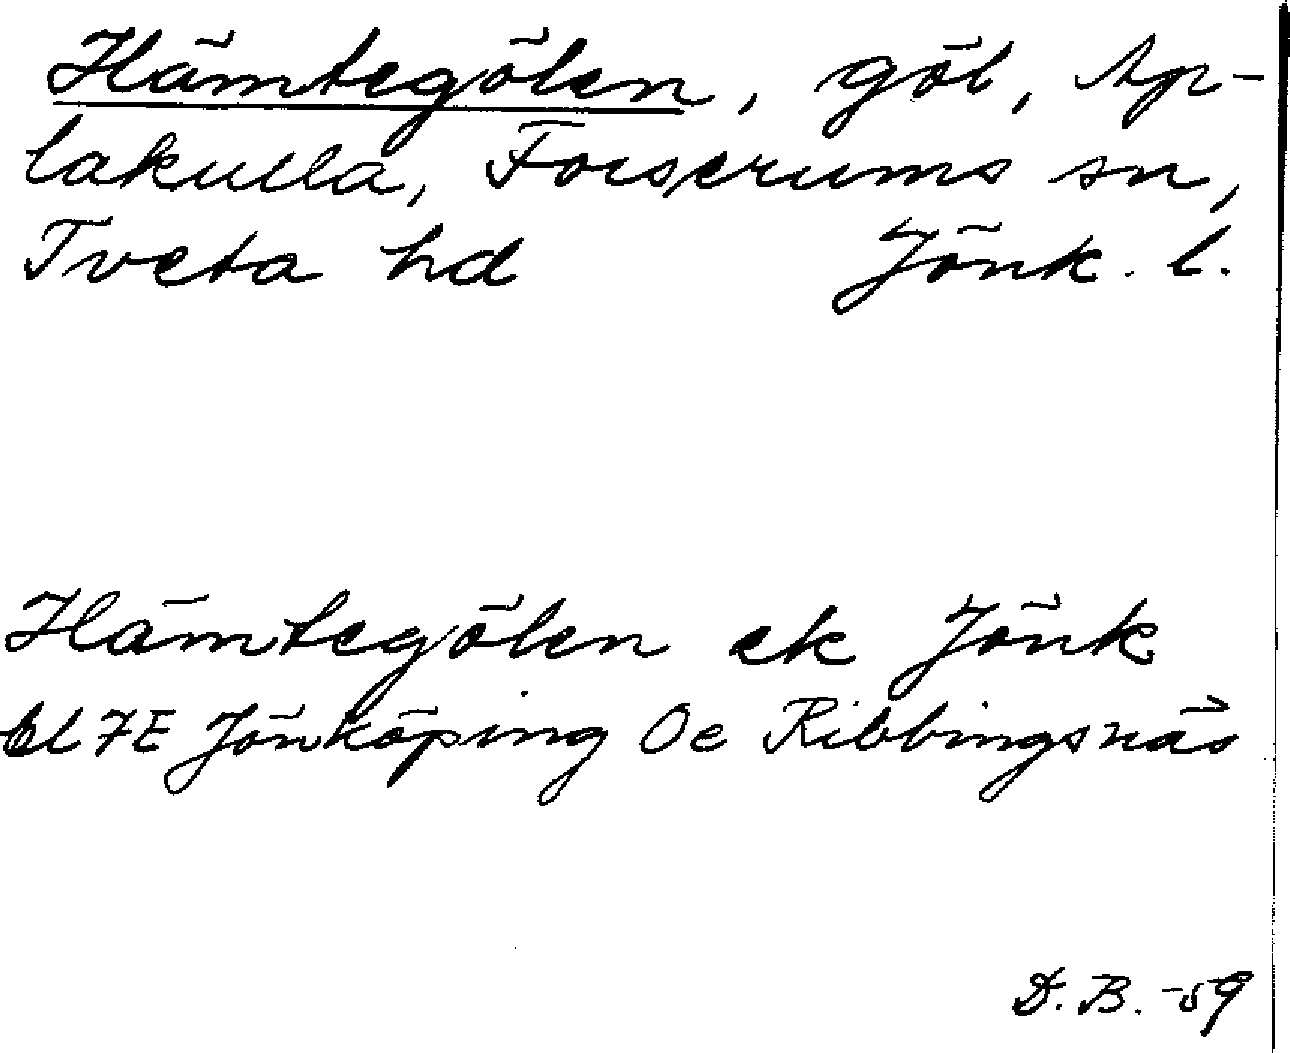 Hämtegölen, göl, Ap-
lakulla, Forserums sn,
Tveta hd Jönk. l.
Hämtegölen ek Jönk
bl 7E Jönköping Oe Ribbingsnäs
D. B. -59